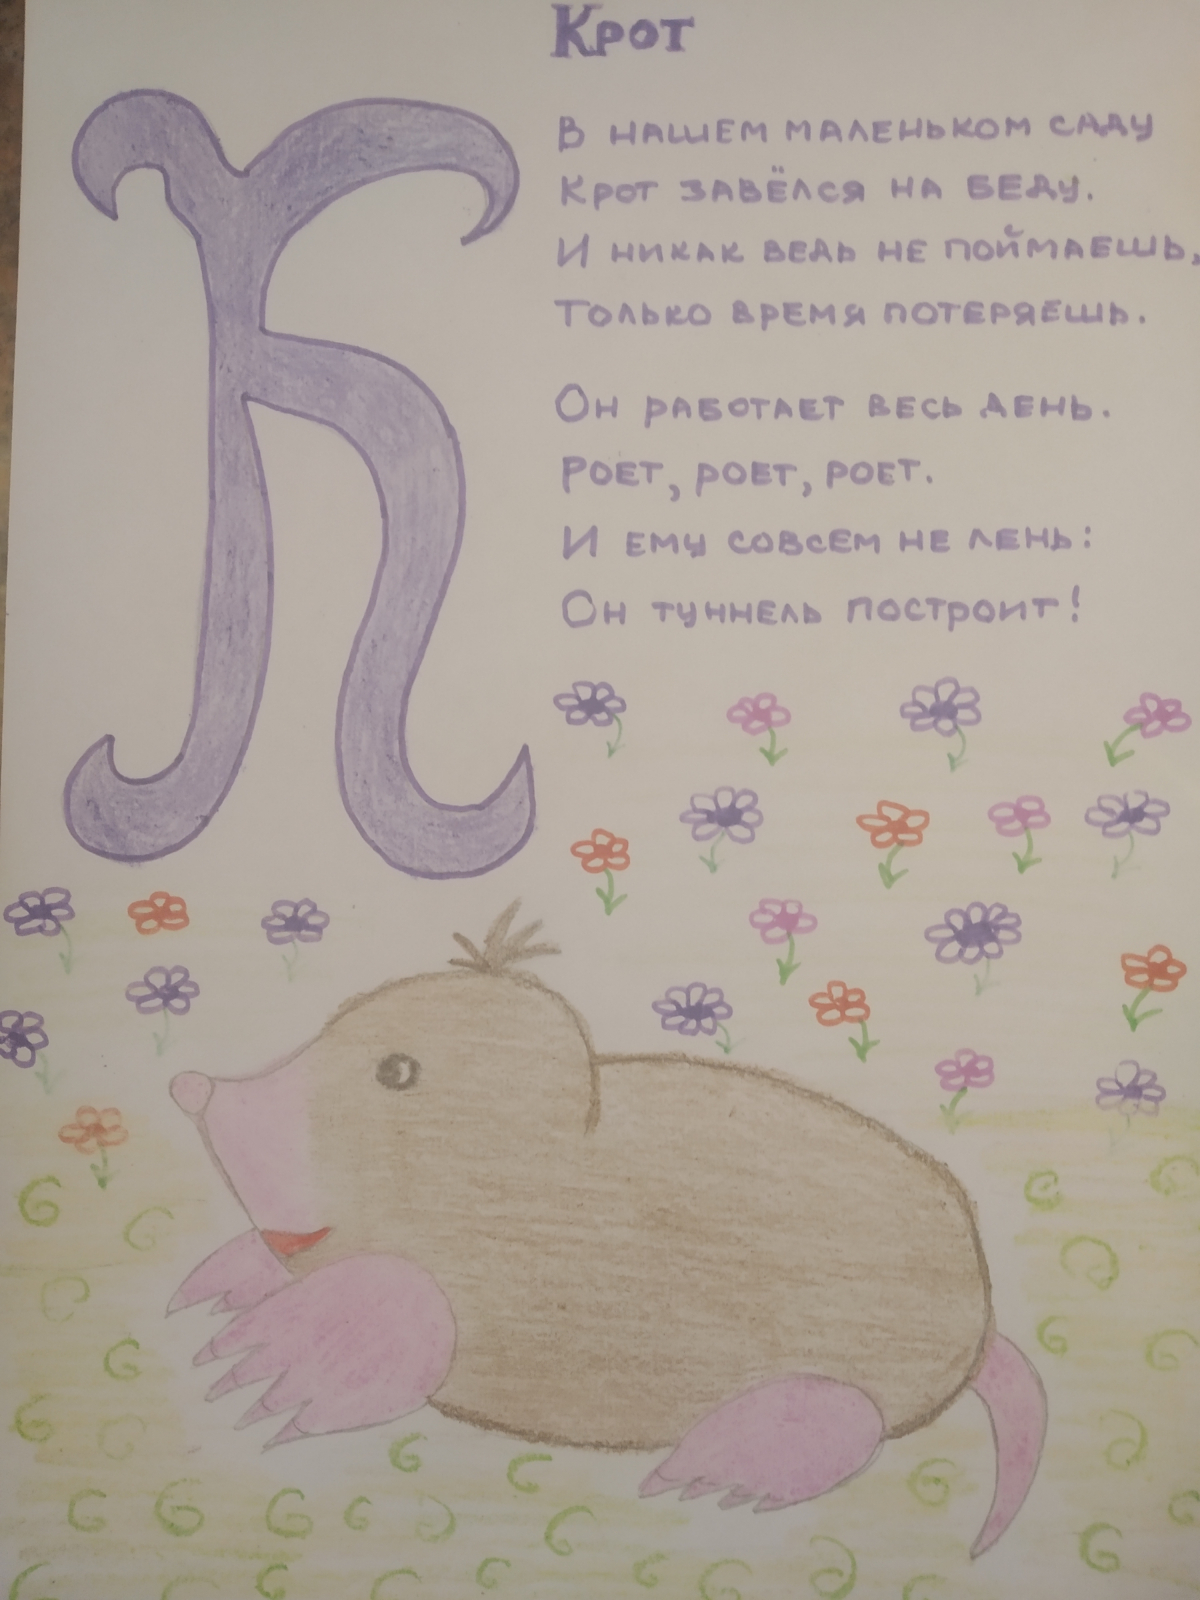 Крот
К
В нашем маленьком саду
Крот завёлся на беду.
И никак ведь не поймаешь,
Только время потеряешь.
Он работает весь день.
Роет, роет, роет.
И ему совсем не лень:
Он туннель построит!